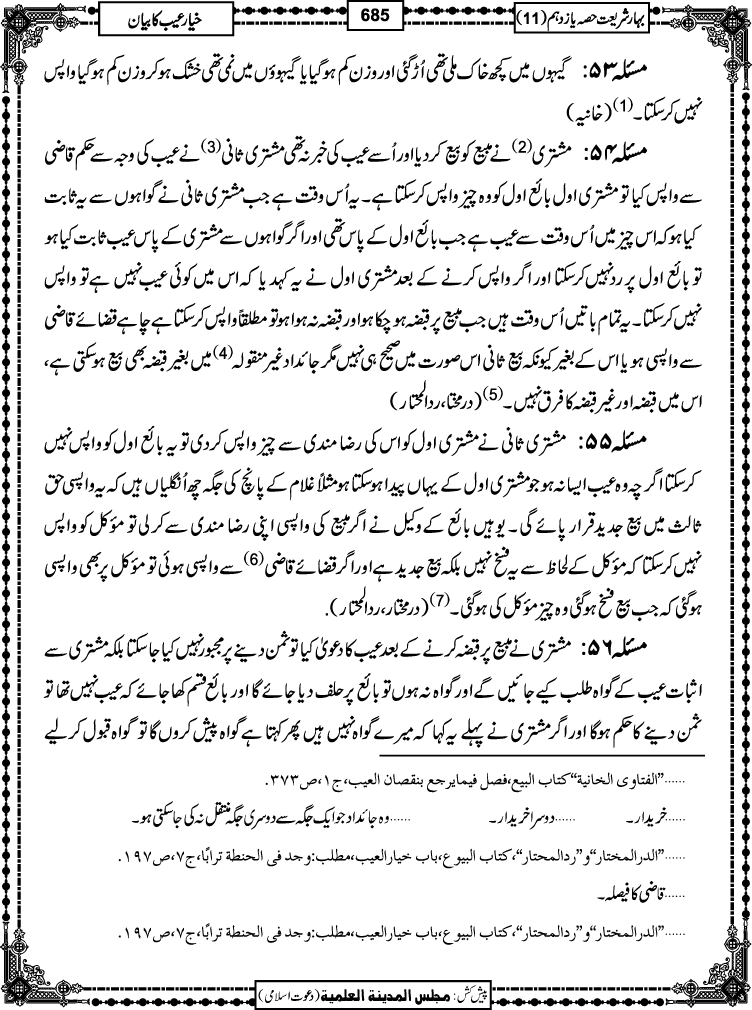 بہارِ شریعت حصہ یازدہم (11)
685
خیار عیب کا بیان
مسئلہ ۵۳: گیہوں میں کچھ خاک ملی تھی اُڑ گئی اور وزن کم ہوگیا یا گیہوؤں میں نمی تھی خشک ہو کر وزن کم ہوگیا واپس
نہیں کرسکتا۔(1) (خانیہ)
مسئلہ ۵۴: مشتری(2) نے مبیع کو بیع کردیا اور اُسے عیب کی خبر نہ تھی مشتری ثانی(3) نے عیب کی وجہ سے حکم قاضی
سے واپس کیا تو مشتری اول بائع اول کو وہ چیز واپس کرسکتا ہے۔ یہ اُس وقت ہے جب مشتری ثانی نے گواہوں سے یہ ثابت
کیا ہو کہ اس چیز میں اُس وقت سے عیب ہے جب بائع اول کے پاس تھی اور اگر گواہوں سے مشتری کے پاس عیب ثابت کیا ہو
تو بائع اول پر رد نہیں کرسکتا اور اگر واپس کرنے کے بعد مشتری اول نے یہ کہدیا کہ اس میں کوئی عیب نہیں ہے تو واپس
نہیں کرسکتا۔ یہ تمام باتیں اُس وقت ہیں جب مبیع پر قبضہ ہوچکا ہو اور قبضہ نہ ہوا ہو تو مطلقاً واپس کرسکتا ہے چاہے قضائے قاضی
سے واپسی ہو یا اس کے بغیر کیونکہ بیع ثانی اس صورت میں صحیح ہی نہیں مگر جائداد غیر منقولہ(4) میں بغیر قبضہ بھی بیع ہوسکتی ہے،
اس میں قبضہ اور غیر قبضہ کا فرق نہیں۔(5) (درمختار، ردالمحتار)
مسئلہ ۵۵: مشتری ثانی نے مشتری اول کو اس کی رضا مندی سے چیز واپس کردی تو یہ بائع اول کو واپس نہیں
کرسکتا اگرچہ وہ عیب ایسا نہ ہو جو مشتری اول کے یہاں پیدا ہوسکتا ہو مثلاً غلام کے پانچ کی جگہ چھ اُنگلیاں ہیں کہ یہ واپسی حق
ثالث میں بیع جدید قرار پائے گی۔ یوہیں بائع کے وکیل نے اگر مبیع کی واپسی اپنی رضا مندی سے کرلی تو مؤکل کو واپس
نہیں کرسکتا کہ مؤکل کے لحاظ سے یہ فسخ نہیں بلکہ بیع جدید ہے اور اگر قضائے قاضی(6) سے واپسی ہوئی تو مؤکل پر بھی واپسی
ہوگئی کہ جب بیع فسخ ہوگئی وہ چیز مؤکل کی ہوگئی۔(7) (درمختار، ردالمحتار).
مسئلہ ۵۶: مشتری نے مبیع پر قبضہ کرنے کے بعد عیب کا دعویٰ کیا تو ثمن دینے پر مجبور نہیں کیا جاسکتا بلکہ مشتری سے
اثبات عیب کے گواہ طلب کیے جائیں گے اور گواہ نہ ہوں تو بائع پر حلف دیا جائے گا اور بائع قسم کھا جائے کہ عیب نہیں تھا تو
ثمن دینے کا حکم ہوگا اور اگر مشتری نے پہلے یہ کہا کہ میرے گواہ نہیں ہیں پھر کہتا ہے گواہ پیش کروں گا تو گواہ قبول کرلیے
......"الفتاوی الخانیة"کتاب البیع،فصل فیمایرجع بنقصان العیب،ج۱،ص۳۷۳.
......خریدار۔ ......دوسرا خریدار۔ ......وہ جائداد جو ایک جگہ سے دوسری جگہ منتقل نہ کی جاسکتی ہو۔
......"الدرالمختار"و"ردالمحتار"،کتاب البیوع،باب خیارالعیب،مطلب:وجد فی الحنطة ترابًا،ج۷،ص۱۹۷.
......قاضی کا فیصلہ۔
......"الدرالمختار"و"ردالمحتار"،کتاب البیوع،باب خیارالعیب،مطلب:وجد فی الحنطة ترابًا،ج۷،ص۱۹۷.
پیش کش: مجلس المدینة العلمیة (دعوت اسلامی)